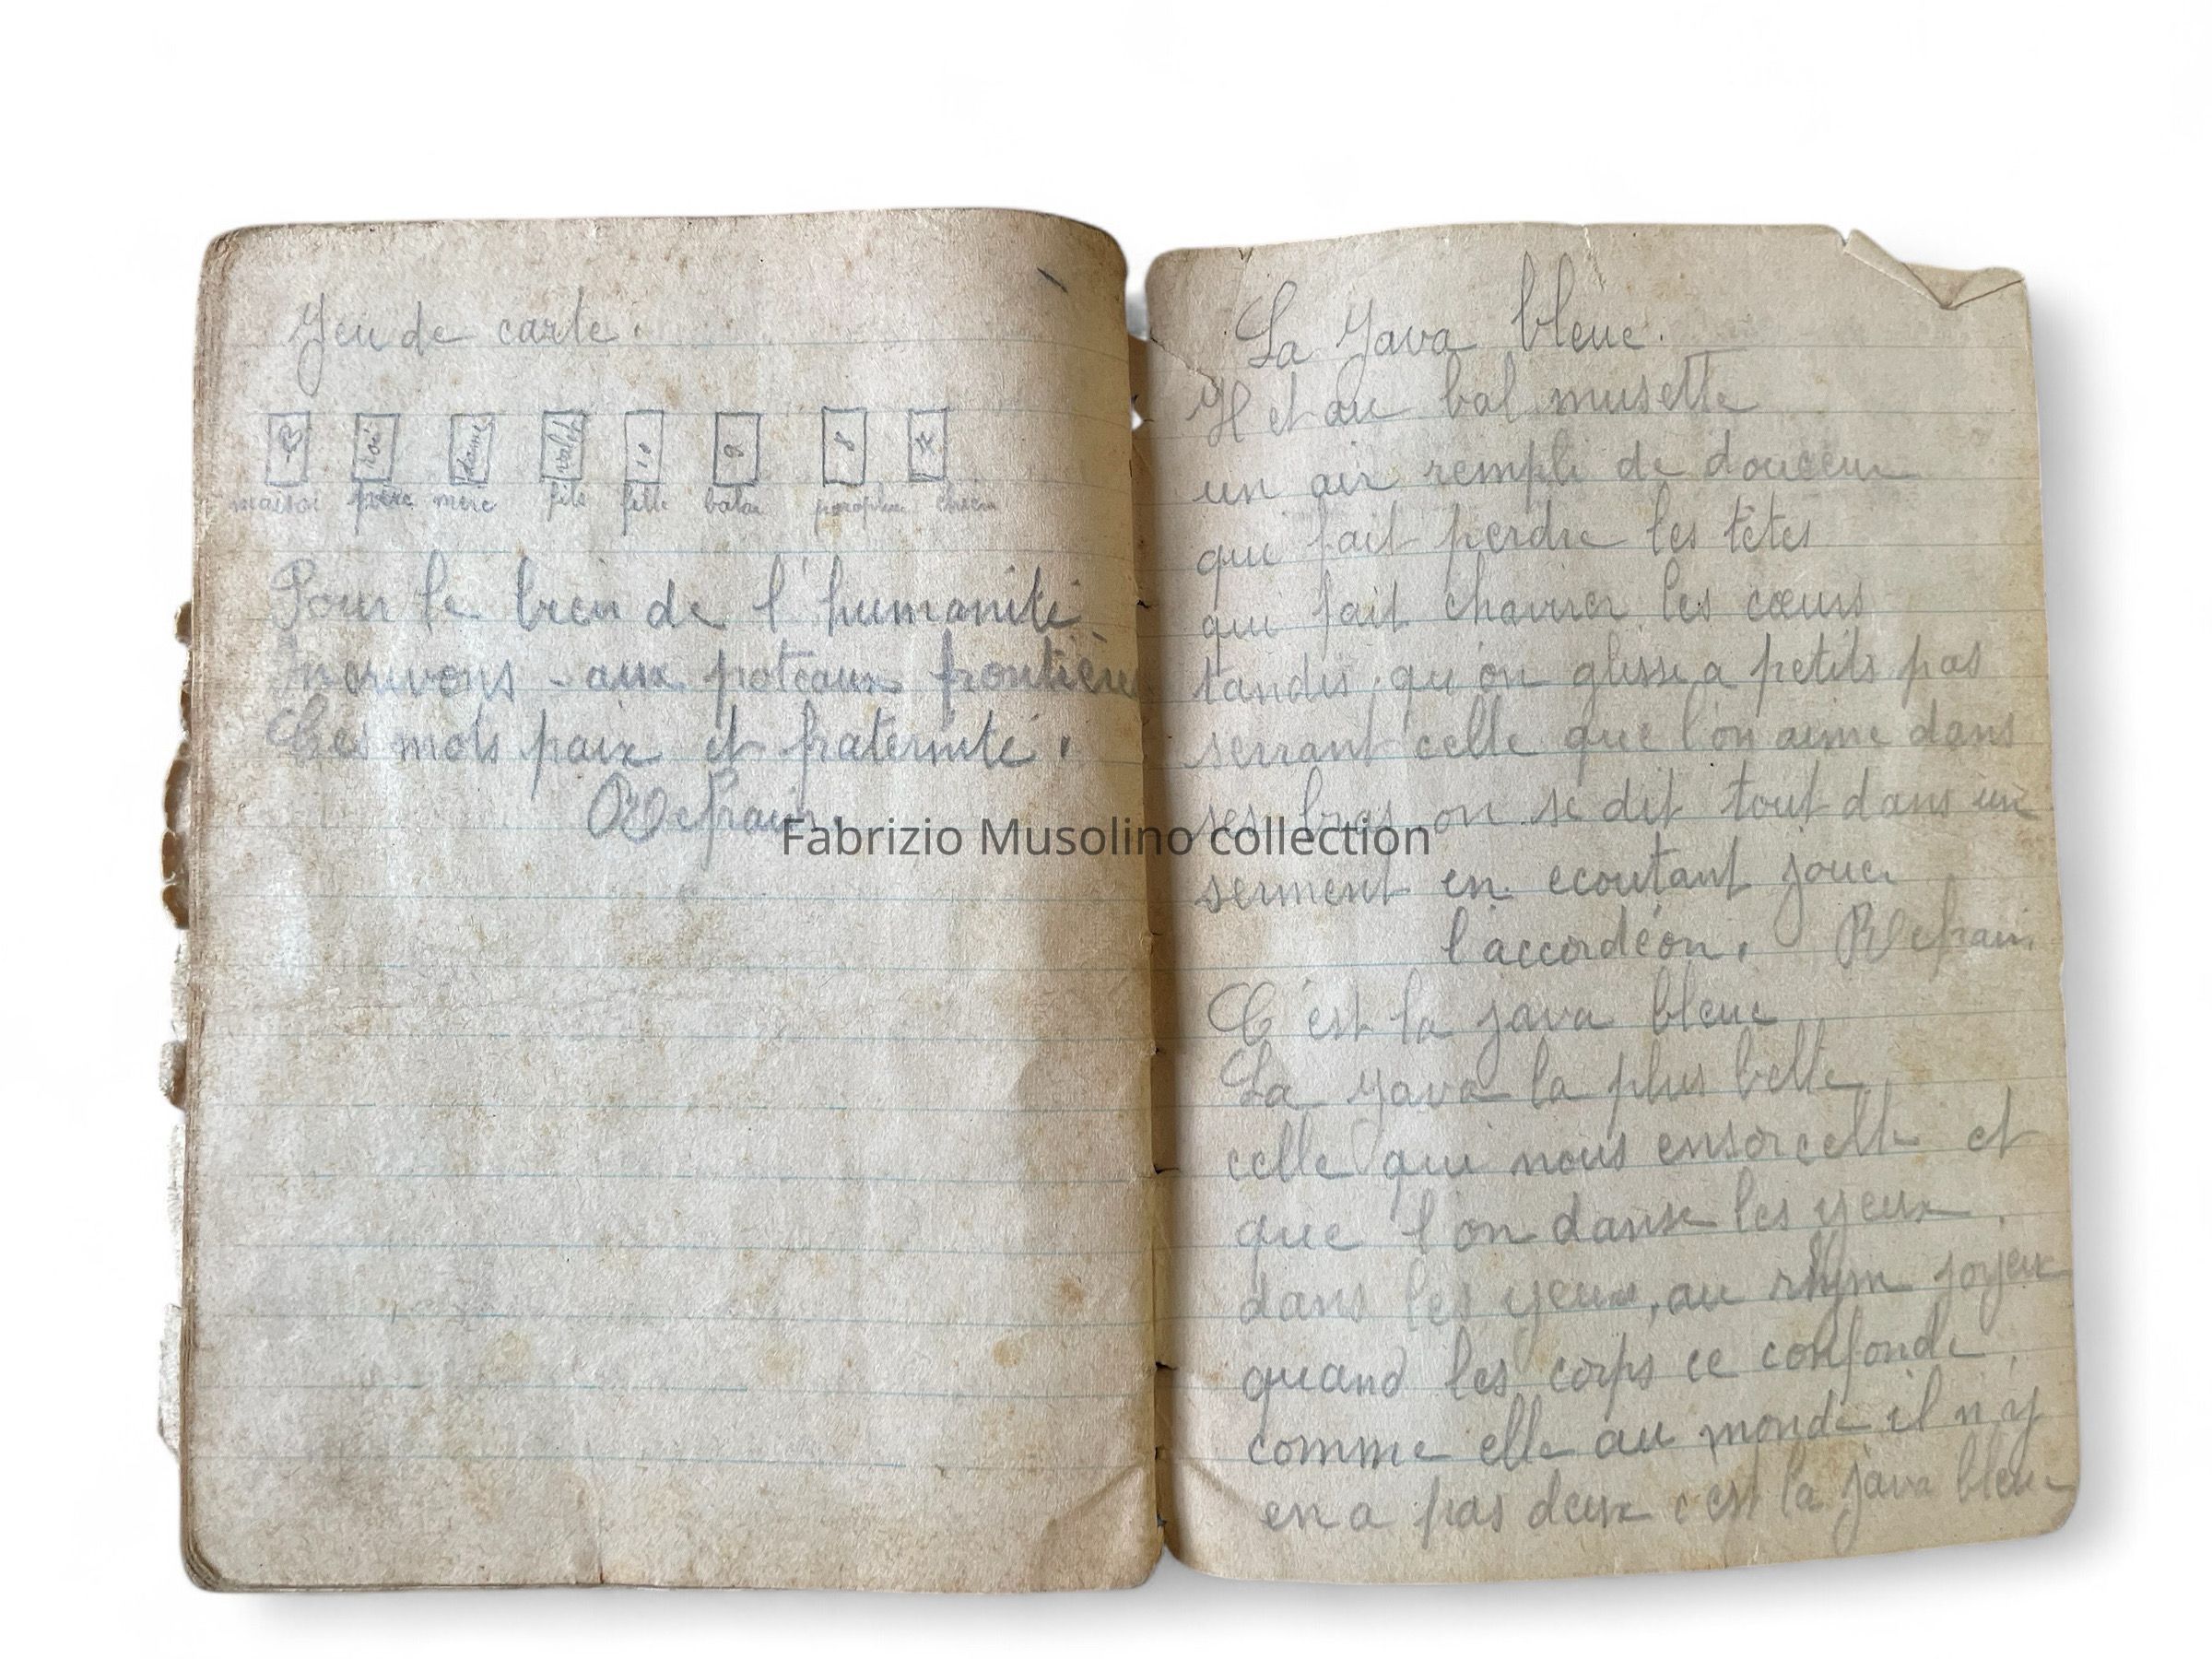 Jeu de carte.
roi dame valet 10 9 8
maison père mère fils fille
Pour le bien de l'humanité
Incrivons aux poteaux frontière
Ces mots paix et fraternité.
Refrain.
Fabrizio Musolino collection
La Java bleue.
Il et au bal musette
un air rempli de douceur
qui fait perdre les têtes
qui fait chavirer les cœurs
tandis qu'on glisse a petits pas
serrant celle que l'on aime dans
ses bras on se dit tout dans un
serment en ecoutant jouer
l'accordéon. Refrain
C'est la java bleue
La Java la plus belle
celle qui nous ensorcelle et
que l'on danse les yeux
dans les yeux, au rhym joyeux
quand les corps ce confonde
comme elle au monde il n'y
en a pas deux c'est la java bleue